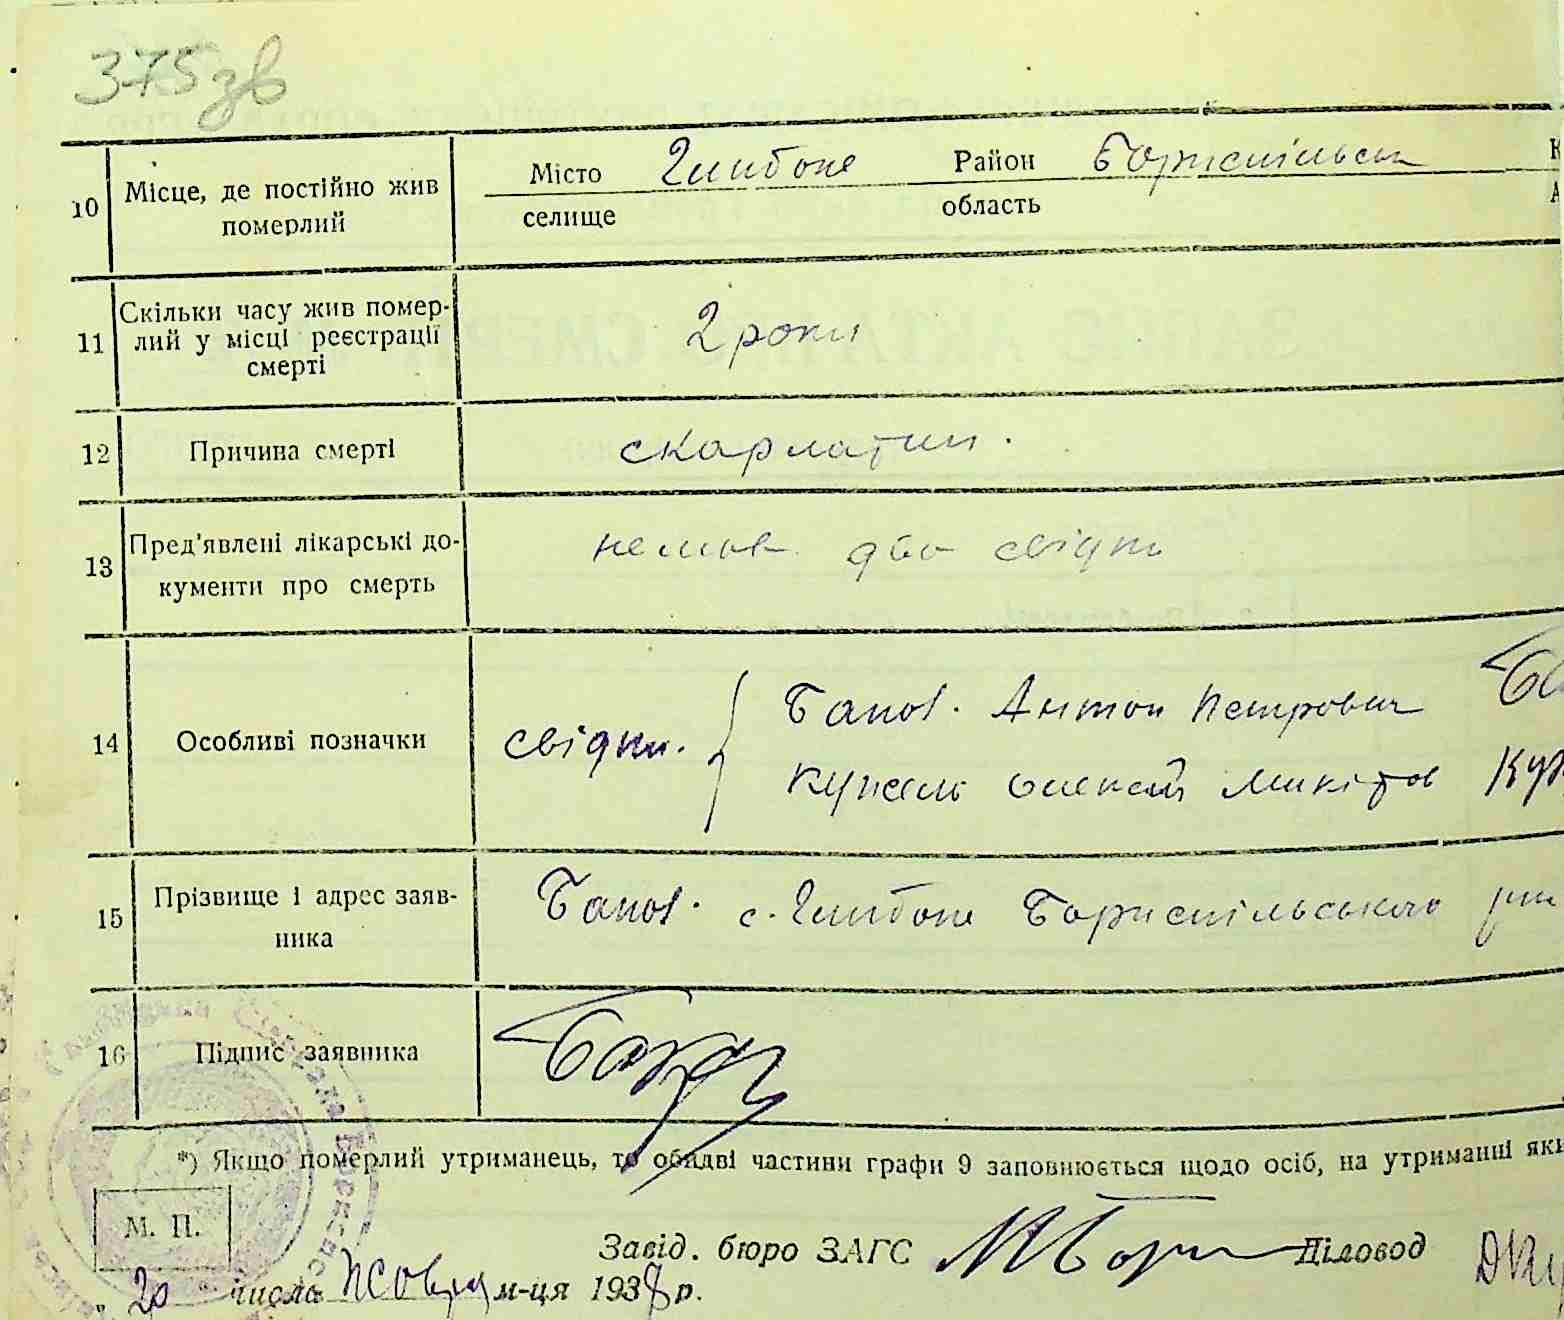 375 зв
10 Місце, де постійно жив померлий Місто Глибоке Район Бориспільськ
селище область
11 Скільки часу жив помер-
лий у місці реєстрації
смерті
2 роки
12 Причина смерті скарлатин.
13 Пред'явлені лікарські до-
кументи про смерть
немає два свідки
14 Особливі позначки свідки. { Антон Петрович
Микітов
15 Прізвище і адрес заяв-
ника
с. Глибоке Бориспільського
16 Підпис заявника
*) Якщо померлий утриманець, то обидві частини графи 9 заповнюється щодо осіб, на утриманні
М. П.
Завід. бюро ЗАГС Діловод
„20 числа м-ця 1938 р.